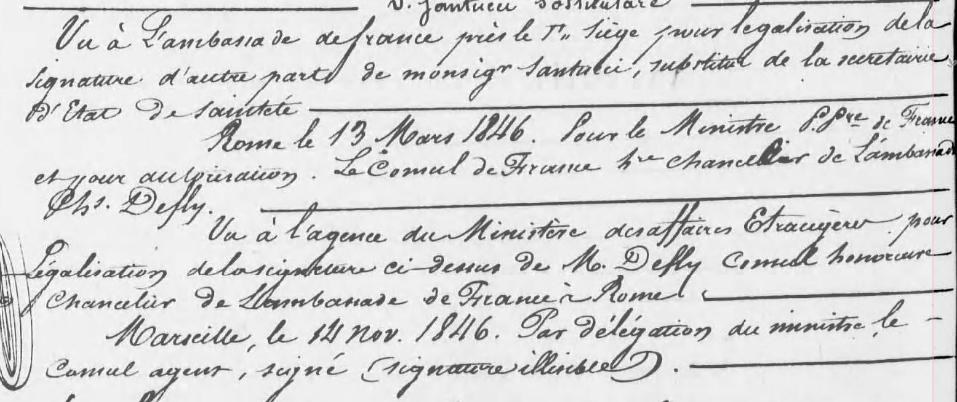 V. Santucci Sostituto
Vu à L'ambassade de france près le St. Siège pour legalisation de la
signature d'autre part de monsigr Santucci, substitut de la secretairie
D'Etat De Sainteté
Rome le 13 Mars 1846. Pour le Ministre P. Pre de France
et par autorisation. Le Consul de France hre chancelier de L'ambassade
Chs. Defly.
Vu à l'agence du Ministère des affaires Etrangères pour
Légalisation de la signature ci-dessus de M. Defly Consul honoraire
Chancelier de L'ambassade de France à Rome
Marseille, le 14 nov. 1846. Par délégation du ministre le
Consul agent, signé (signature illisible).